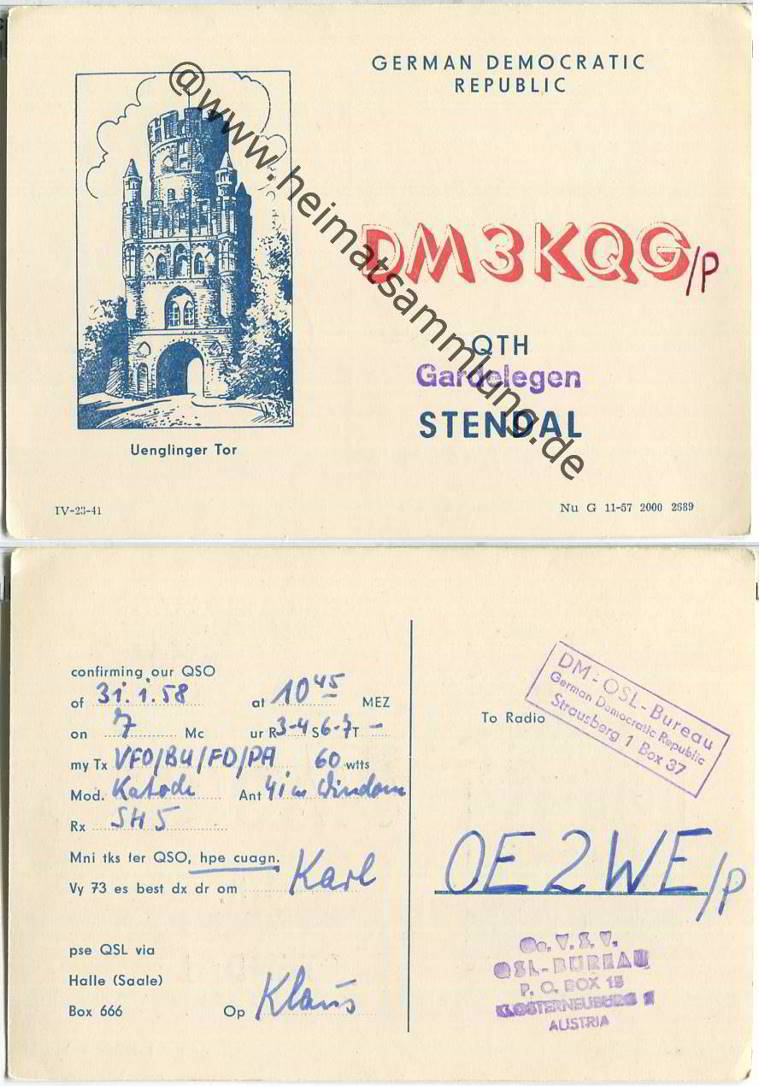 GERMAN DEMOCRATIC
REPUBLIC
@www.heimatsammlung.de
DM3KQG/P
QTH
Gardelegen
STENDAL
Uenglinger Tor
IV-23-41
Nu G 11-57 2000 2689
confirming our QSO
of 31.1.58 at 10 45 MEZ
on 7 Mc ur R 3-4 S 6-7 T -
my Tx VFO/BU/FD/PA 60 wtts
Mod. Katode Ant 41 m Windom
Rx SH 5
Mni tks fer QSO, hpe cuagn.
Vy 73 es best dx dr om Karl
pse QSL via
Halle (Saale)
Box 666 Op Klaus
To Radio
DM-QSL-Bureau
German Democratic Republic
Strausberg 1 Box 37
OE2WE/P
Oe. V. S. V.
QSL-BUREAU
P. O. BOX 15
KLOSTERNEUBURG 1
AUSTRIA